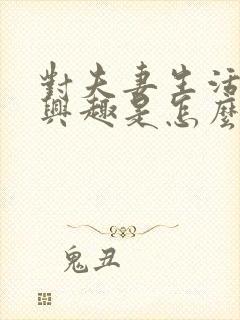 對夫妻生活
興趣是怎麼
鬼丑